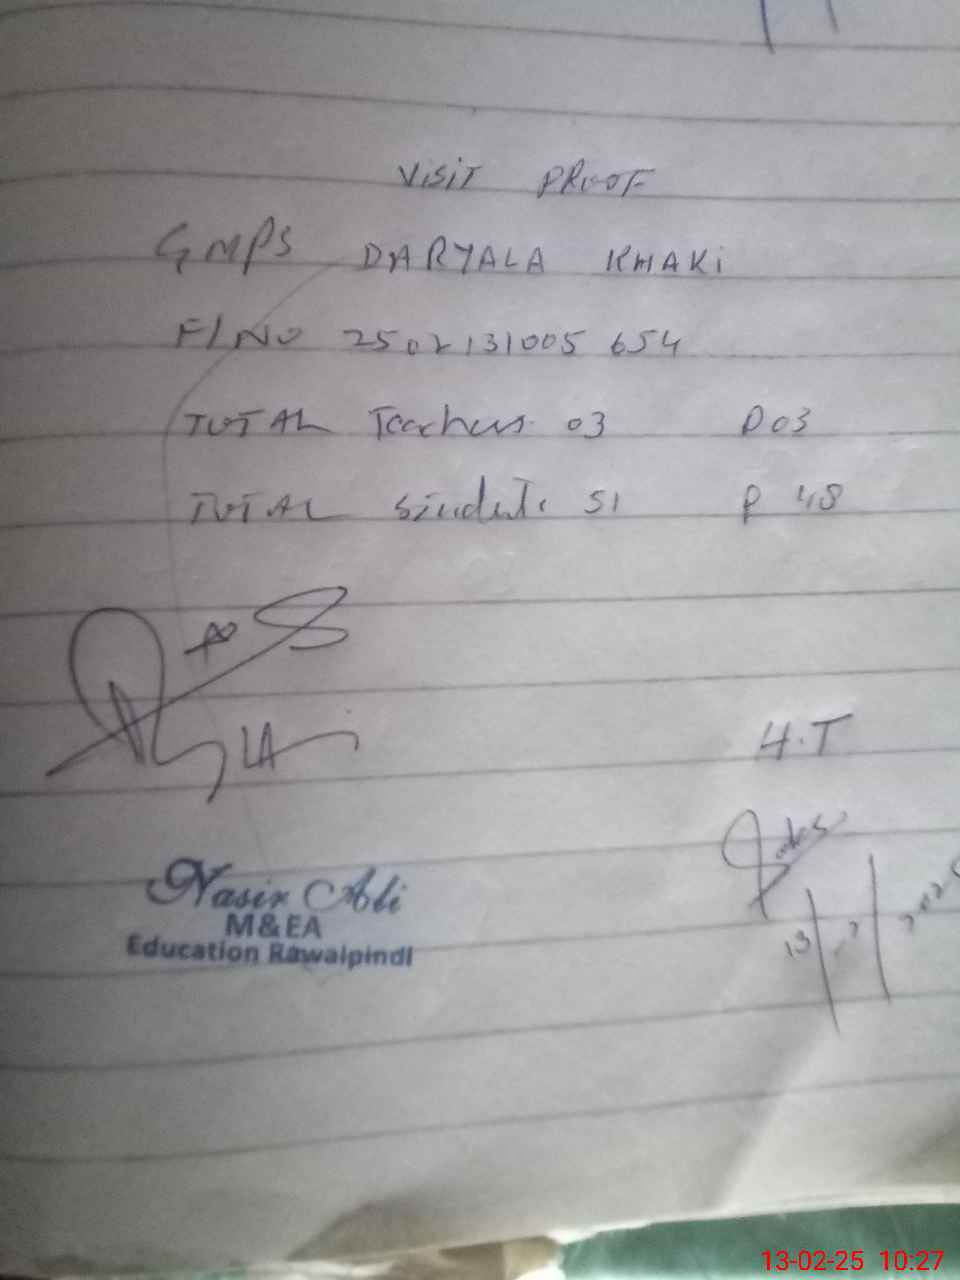 VISIT PROOF
GMPS DARYALA KHAKI
F/NO 2502131005654
TOTAL Teachers 03 P 03
TOTAL Students 51 P 48
H.T
13/2/2025
Nasir Ali
M&EA
Education Rawalpindi
13-02-25 10:27